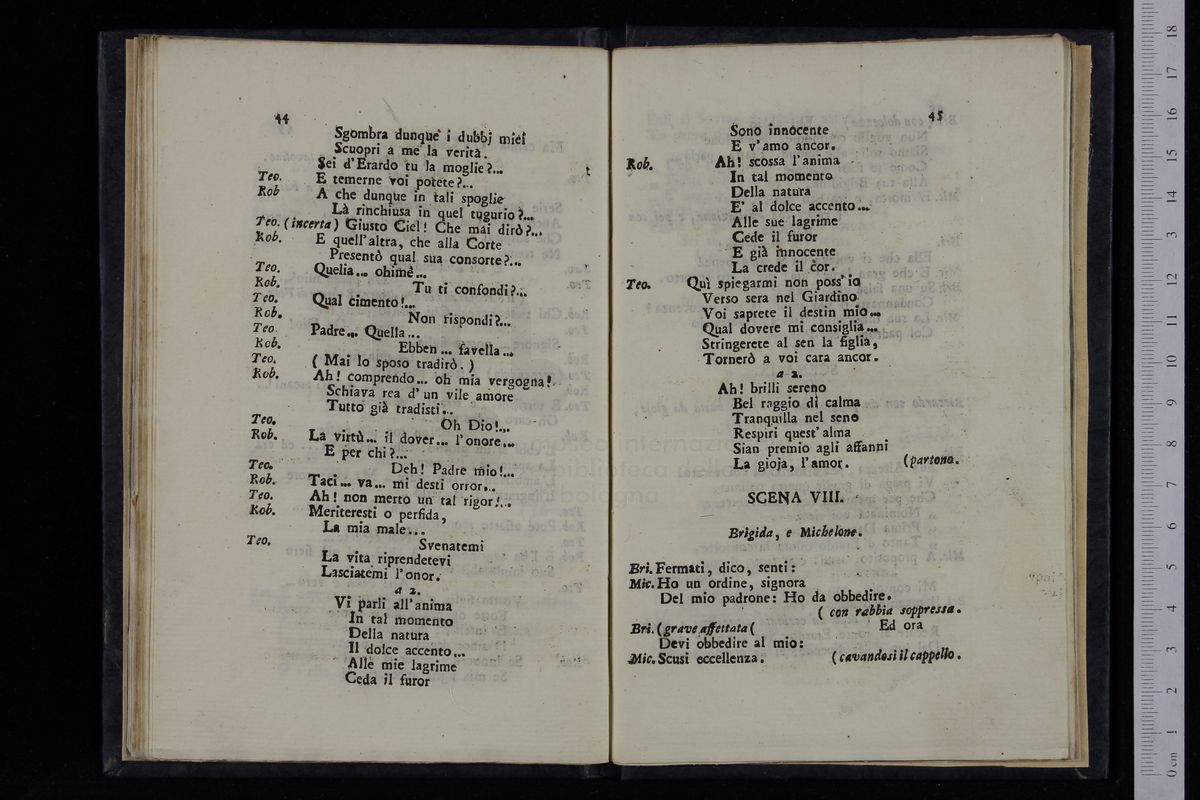 44
Sgombra dunque i dubbj miei
Scuopri a me la verità.
Sei d'Erardo tu la moglie?...
Teo. E temerne voi potete?...
Rob A che dunque in tali spoglie
Là rinchiusa in quel tugurio?...
Teo. (incerta) Giusto Ciel! Che mai dirò?...
Rob. E quell'altra, che alla Corte
Presentò qual sua consorte?...
Teo. Quella... ohimè...
Rob. Tu ti confondi?...
Teo. Qual cimento!...
Rob. Non rispondi?...
Teo. Padre... Quella...
Rob. Ebben... favella...
Teo. ( Mai lo sposo tradirò. )
Rob. Ah! comprendo... oh mia vergogna!
Schiava rea d'un vile amore
Tutto già tradisti...
Teo. Oh Dio!...
Rob. La virtù... il dover... l'onore...
E per chi?...
Teo. Deh! Padre mio!...
Rob. Taci... va... mi desti orror...
Teo. Ah! non merto un tal rigor!...
Rob. Meriteresti o perfida,
La mia male...
Teo. Svenatemi
La vita riprendetevi
Lasciatemi l'onor.
a 2.
Vi parli all'anima
In tal momento
Della natura
Il dolce accento...
Alle mie lagrime
Ceda il furor
45
Sono innocente
E v'amo ancor.
Rob. Ah! scossa l'anima
In tal momento
Della natura
E' al dolce accento...
Alle sue lagrime
Cede il furor
E già innocente
La crede il cor.
Teo. Quì spiegarmi non poss'io
Verso sera nel Giardino
Voi saprete il destin mio...
Qual dovere mi consiglia...
Stringerete al sen la figlia,
Tornerò a voi cara ancor.
a 2.
Ah! brilli sereno
Bel raggio di calma
Tranquilla nel seno
Respiri quest'alma
Sian premio agli affanni
La gioja, l'amor. (partono.
SCENA VIII.
Brigida, e Michelone.
Bri. Fermati, dico, senti:
Mic. Ho un ordine, signora
Del mio padrone: Ho da obbedire.
( con rabbia soppressa.
Bri. (grave affettata ( Ed ora
Devi obbedire al mio:
Mic. Scusi eccellenza. (cavandosi il cappello.
museo internazionale
biblioteca della musica
bologna